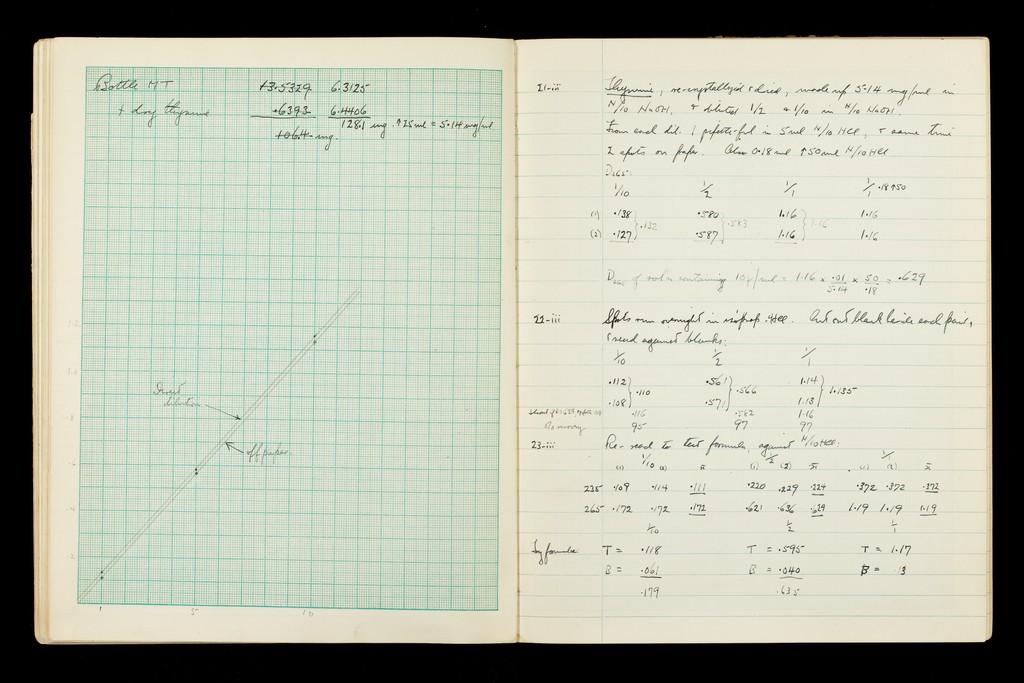 Bottle MT 13.5329 6.3125
+ dry thymine .6393 6.4406
128.1 mg ↑ 25 ml = 5.14 mg/ml
106.4 mg.
1.2
1.0
.8
.6
.4
.2
Direct
dilution
off paper
1 5 10
21-iii Thymine, re-crystallized & dried, made up 5.14 mg/ml in
N/10 NaOH, & diluted 1/2 & 1/10 in N/10 NaOH.
From each dil. 1 pipette-ful in 5 ml N/10 HCl, & same time
2 spots on paper. Also 0.18 ml ↑ 50 ml N/10 HCl
D265:
1/10 1/2 1/1 1/1 .18↑50
(1) .138 .580 1.16 1.16
.132 .583 1.16
(2) .127 .587 1.16 1.16
D265 of soln containing 10γ/ml = 1.16 × .01/5.14 × 50/.18 = .629
22-iii Spots run overnight in isoprop.HCl. Cut out blank beside each pair,
& read against blanks:
1/10 1/2 1/1
.112 .561 1.14
.110 .566 1.135
.108 .571 1.13
.116 .582 1.16
% recovery 95 97 97
23-iii Re-read to test formula, against N/10 HCl:
1/10 1/2 1/1
(1) (2) x̄ (1) (2) x̄ (1) (2) x̄
235 .109 .114 .111 .220 .229 .224 .372 .372 .372
265 .172 .172 .172 .621 .636 .629 1.19 1.19 1.19
1/10 1/2 1/1
By formula T = .118 T = .595 T = 1.17
B = .061 B = .040 B = .13
.179 .635